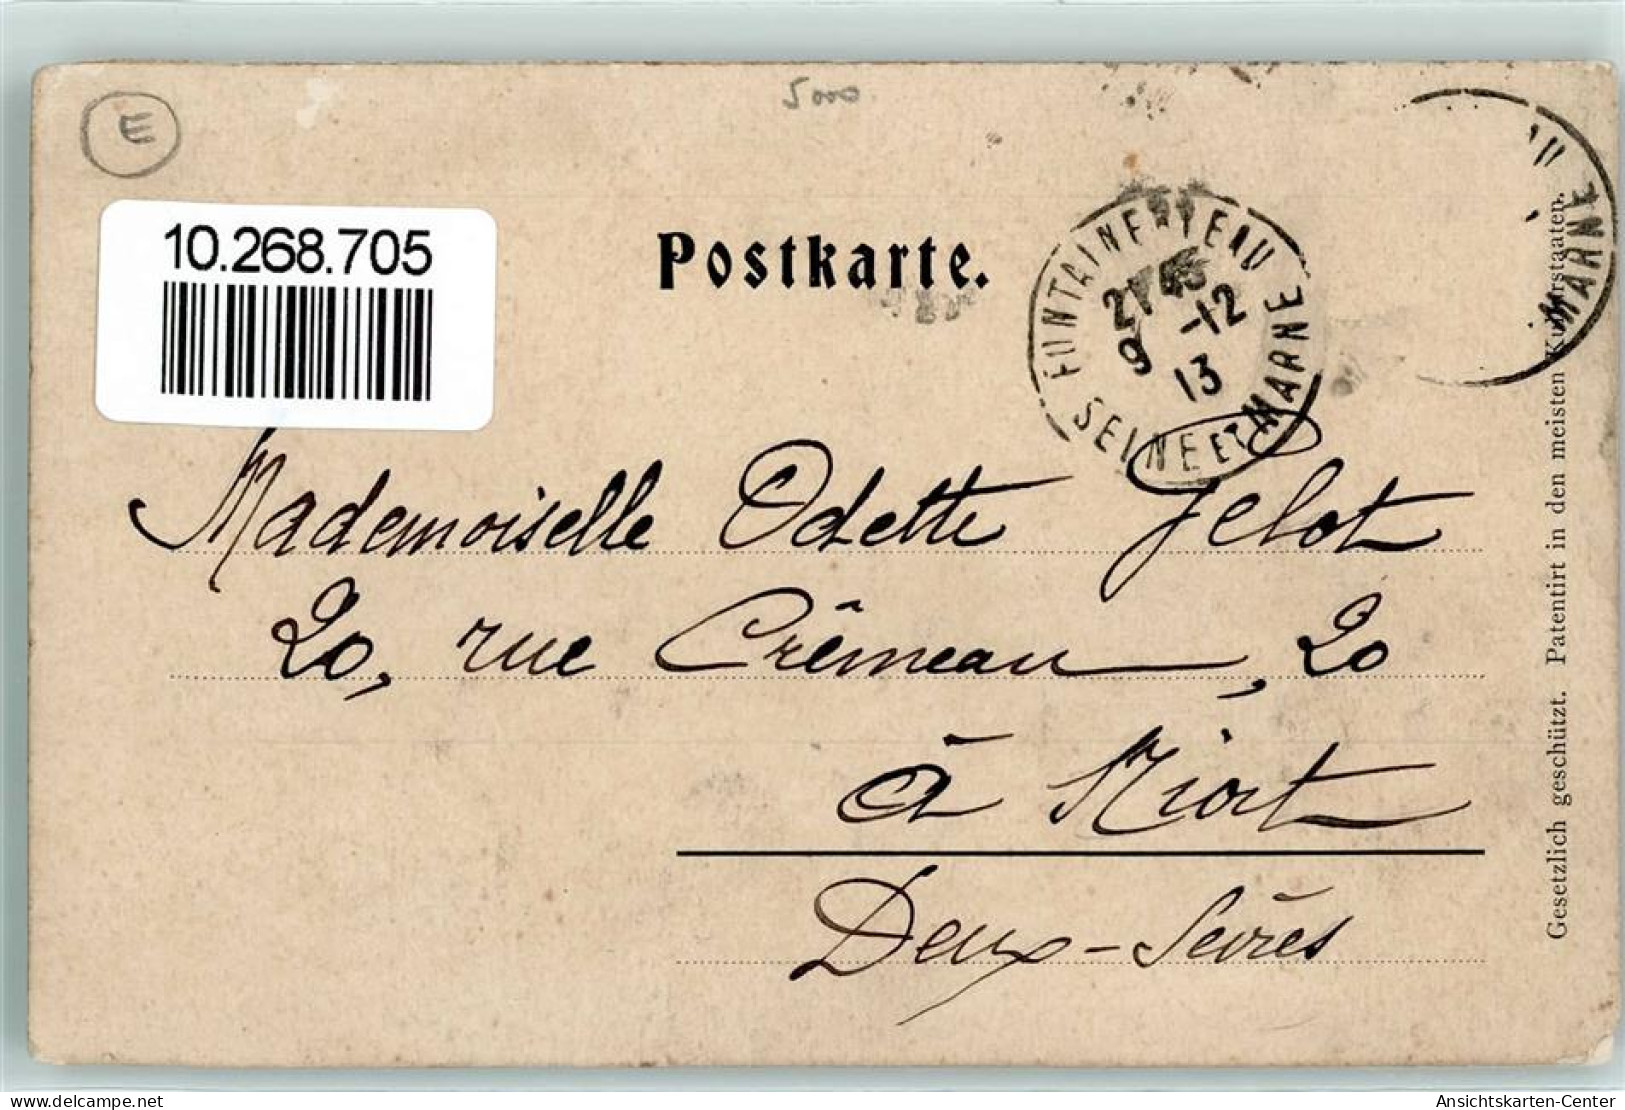 E
5000
10.268.705
Postkarte.
FONTAINEBLEAU
21 45
9 -12
13
SEINE ET MARNE
AU
MARNE
Mademoiselle Odette Jelot
20, rue Crêmeau, 20
à Niort
Deux-Sèvres
Gesetzlich geschützt. Patentirt in den meisten Kulturstaaten.
delcampe.net
Ansichtskarten-Center